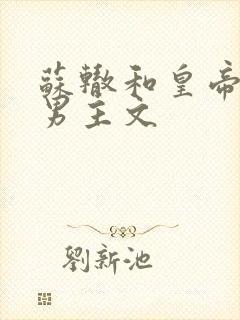 蘇轍和皇帝
男主文
劉新池